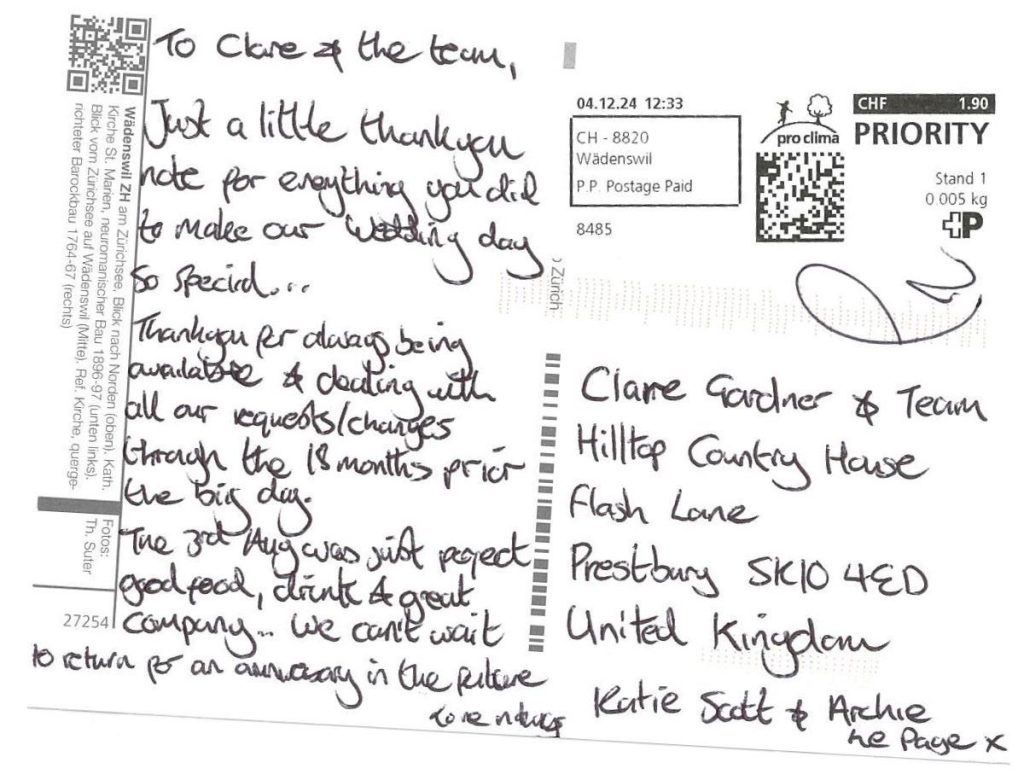 To Clare & the team,
Just a little thankyou
note for everything you did
to make our wedding day
so special...
Thankyou for always being
available & dealing with
all our requests/changes
through the 18 months prior
the big day.
The 3rd Aug was just perfect
good food, drink & great
company... We can't wait
to return for an anniversary in the future
Wädenswil ZH am Zürichsee. Blick nach Norden (oben). Kath.
Kirche St. Marien, neuromanischer Bau 1896-97 (unten links).
Blick vom Zürichsee auf Wädenswil (Mitte). Ref. Kirche, querge-
richteter Barockbau 1764-67 (rechts)
Fotos:
Th. Suter
27254
04.12.24 12:33
CH - 8820
Wädenswil
P.P. Postage Paid
8485
pro clima
CHF 1.90
PRIORITY
Stand 1
0.005 kg
P
Zürich
Claire Gardner & Team
Hilltop Country House
Flash Lane
Prestbury SK10 4ED
United Kingdom
Katie Scott & Archie
Le Page x